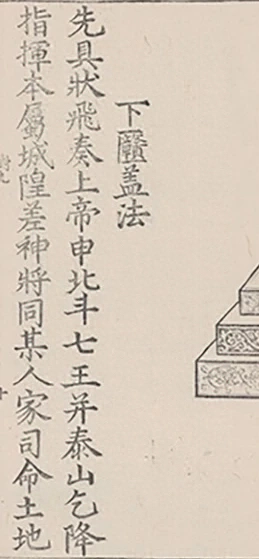 下盖法
先具狀飛奏上帝申北斗七王并泰山乞降
指揮本屬城隍差神將同某人家司命土地